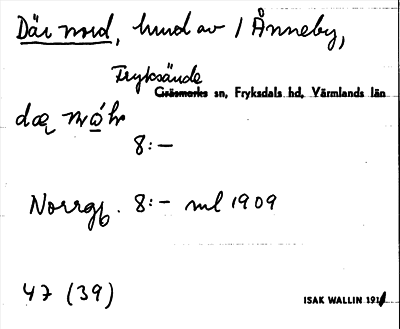 Där nord, hmd av / Ånneby,
Fryksände
Gräsmarks sn, Fryksdals hd, Värmlands län
8:-
Norrgb. 8:- ml 1909
47 (39)
ISAK WALLIN 191